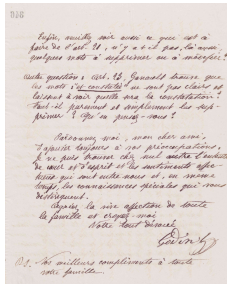 Enfin, veuillez voir aussi ce que est à
faire de l'art. 21, n'y a-t-il pas, là aussi,
quelques mots à supprimer ou à modifier?
Autre question: art. 23. Gonault trouve que
les mots: et constaté ne sont pas clairs et
laissent à voir quelle sera la constatation?
Faut-il purement et simplement les sup-
primer? Qu'en pensez-vous?
Pardonnez-moi, mon cher ami,
d'ajouter toujours à vos préoccupations.
Je ne puis trouver chez nul autre
de cœur et d'esprit et les sentiments affec-
tueux qui sont entre nous et, en même
temps, les connaissances spéciales qui vous
distinguent.
la vive affection de toute
la famille et croyez-moi
Votre tout dévoué
Nos meilleurs compliments à toute
votre famille.